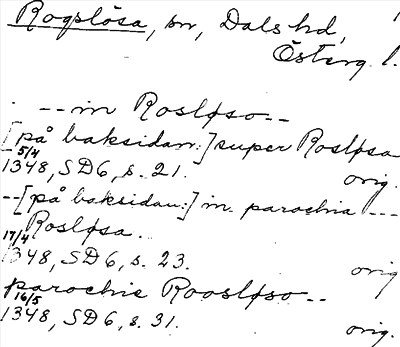 Rogslösa, sn, Dals hd,
Österg. l.
--in Rosløso--
[på baksidan:] super Rosløsa
5/4
1348, SD6, s. 21. orig.
--[på baksidan:] in parochia ---
Rosløsa.
17/4
1348, SD6, s. 23. orig
parochie Roosløso--
16/5
1348, SD6, s. 31. orig.